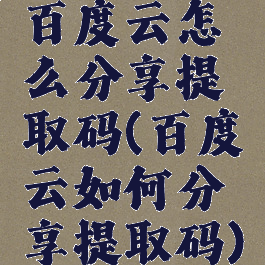 百度云怎
么分享提
取码(百度
云如何分
享提取码)